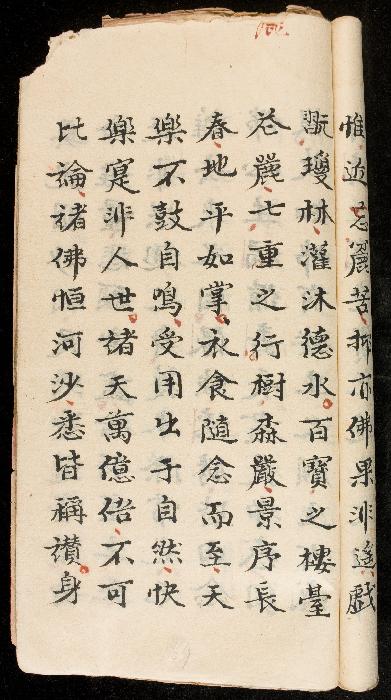 惟近苦抑亦佛果非遙戲
翫瓊林灌沐德水百寶之樓臺
麗七重之行樹森嚴景序長
春地平如掌衣食隨念而至天
樂不鼓自鳴受用出于自然快
樂寔非人世諸天萬億倍不可
比論諸佛恒河沙悉皆稱讃身